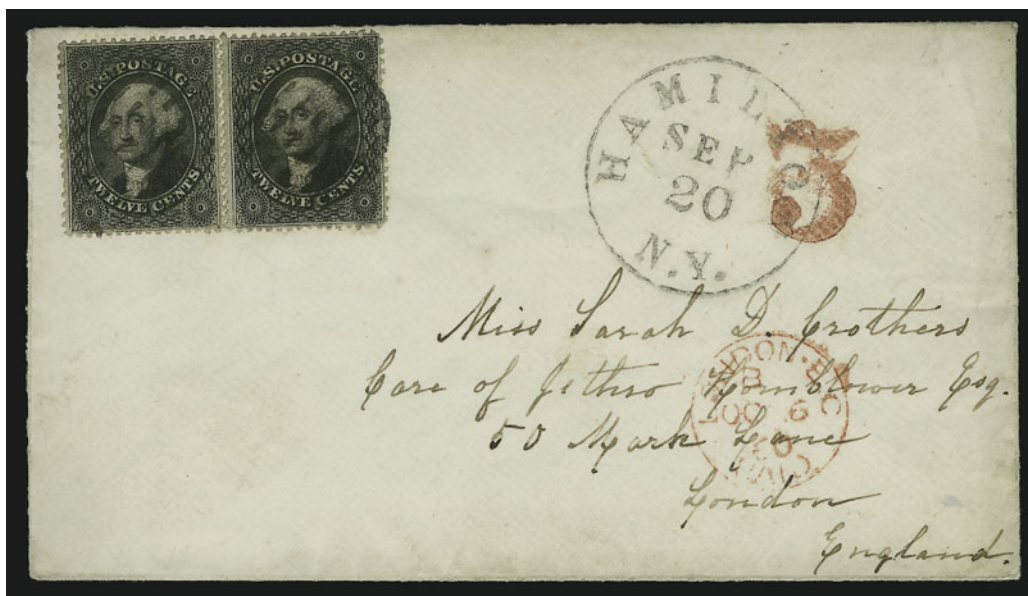 U.S. POSTAGE. U.S. POSTAGE.
TWELVE CENTS TWELVE CENTS
HAMIL
SEP
20
N.Y.
3
Miss Sarah D. Crothers
Care of Jethro Hornblower Esq.
50 Mark Lane
London
England.
LONDON · E.C
B
OC 6
60
PAID